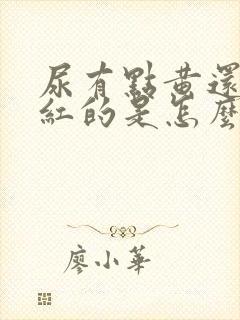 尿有點黃還
紅的是怎麼
廖小華